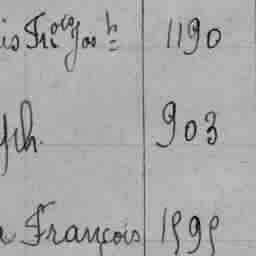 is Fr^çois Jos^h 1190
ph. 903
François 1595